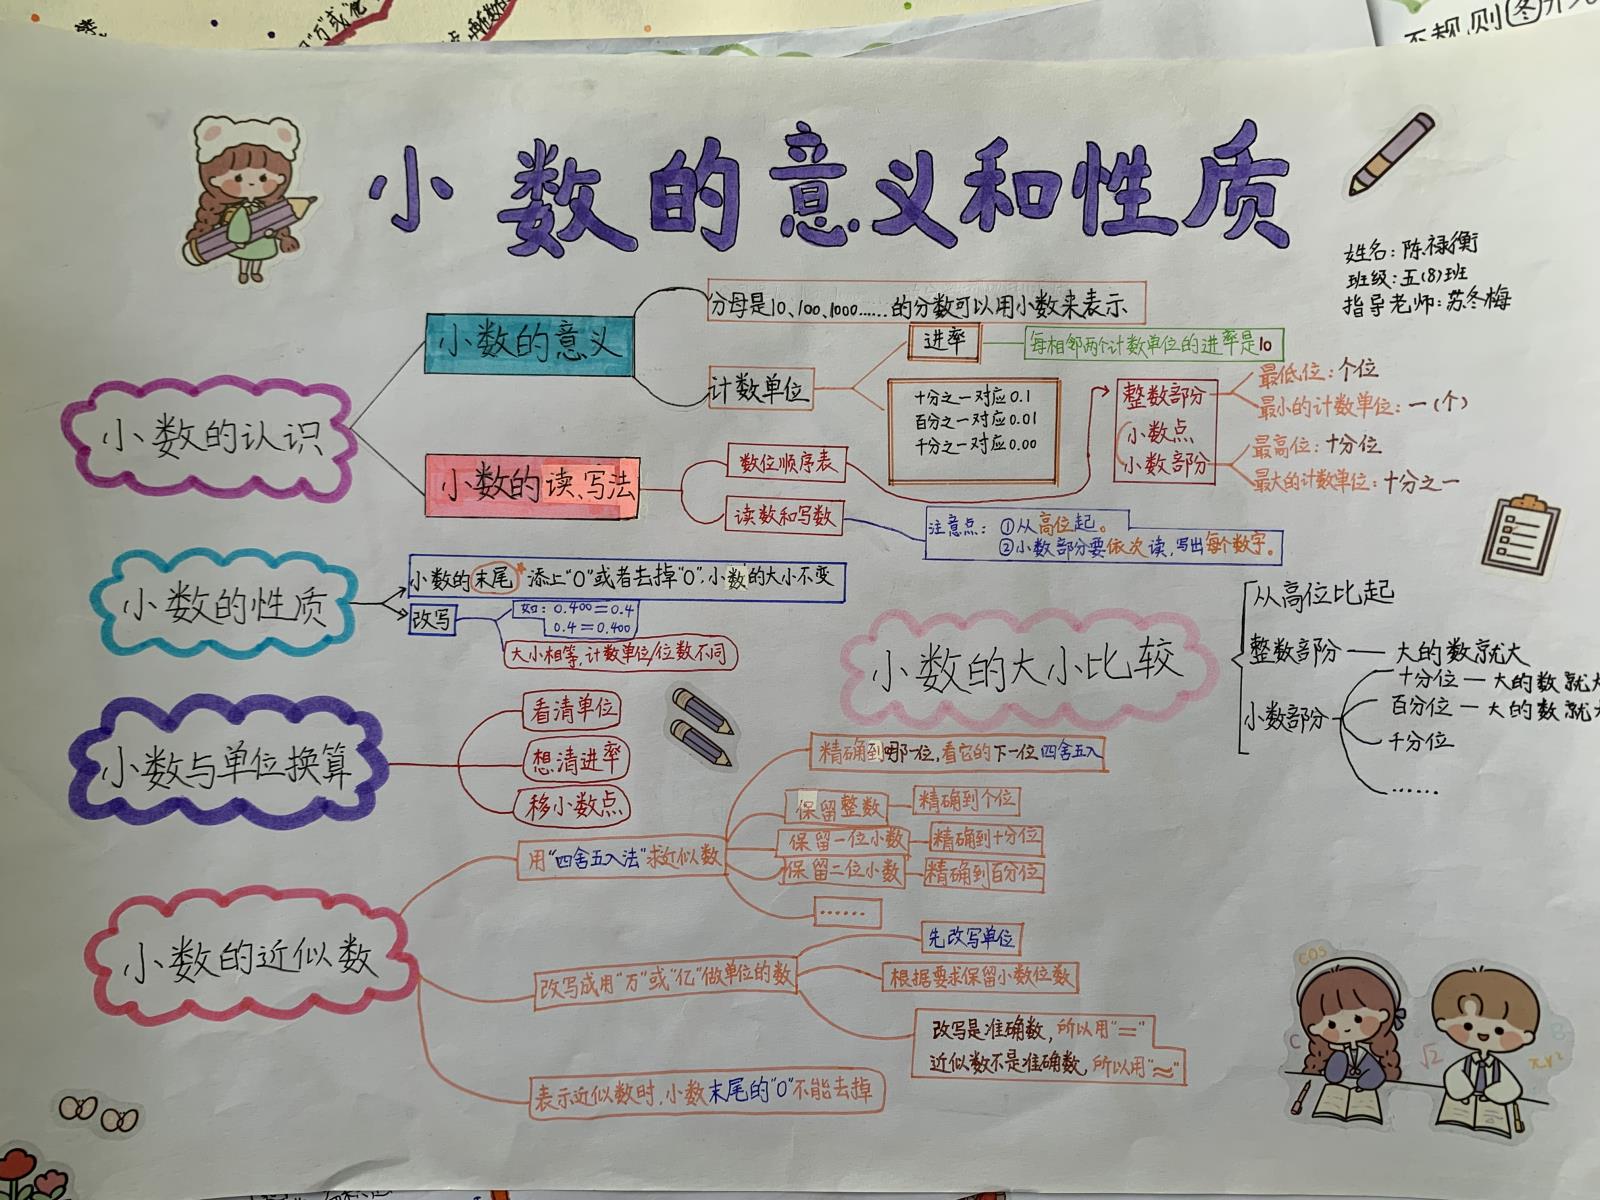 小数的意义和性质
姓名:陈禄衡
班级:五(8)班
指导老师:苏冬梅
小数的认识
小数的意义
分母是10、100、1000……的分数可以用小数来表示
计数单位
进率
每相邻两个计数单位的进率是10
十分之一对应0.1
百分之一对应0.01
千分之一对应0.00
小数的读、写法
数位顺序表
整数部分
小数点
小数部分
最低位:个位
最小的计数单位:一(个)
最高位:十分位
最大的计数单位:十分之一
读数和写数
注意点:①从高位起。
②小数部分要依次读,写出每个数字。
小数的性质
小数的末尾*添上"0"或者去掉"0",小数的大小不变
改写
如:0.400=0.4
0.4=0.400
大小相等,计数单位/位数不同
小数的大小比较
从高位比起
整数部分 — 大的数就大
小数部分
十分位 — 大的数就大
百分位 — 大的数就
千分位
……
小数与单位换算
看清单位
想清进率
移小数点
小数的近似数
用"四舍五入法"求近似数
精确到哪一位,看它的下一位四舍五入
保留整数
精确到个位
保留一位小数
精确到十分位
保留二位小数
精确到百分位
……
改写成用"万"或"亿"做单位的数
先改写单位
根据要求保留小数位数
改写是准确数,所以用"="
近似数不是准确数,所以用"≈"
表示近似数时,小数末尾的"0"不能去掉
COS
C
√2
B
πr²